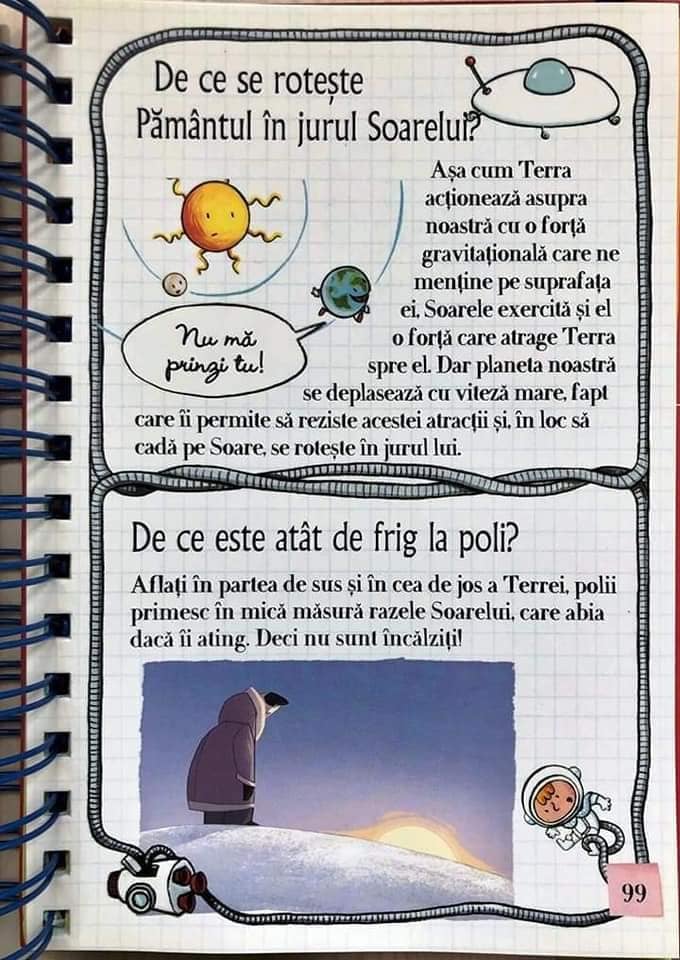 De ce se rotește
Pământul în jurul Soarelui?
Așa cum Terra
acționează asupra
noastră cu o forță
gravitațională care ne
menține pe suprafața
ei, Soarele exercită și el
o forță care atrage Terra
spre el. Dar planeta noastră
se deplasează cu viteză mare, fapt
care îi permite să reziste acestei atracții și, în loc să
cadă pe Soare, se rotește în jurul lui.
Nu mă
prinzi tu!
De ce este atât de frig la poli?
Aflați în partea de sus și în cea de jos a Terrei, polii
primesc în mică măsură razele Soarelui, care abia
dacă îi ating. Deci nu sunt încălziți!
99